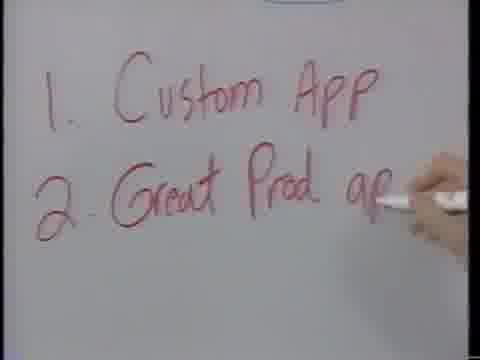 1. Custom App
2. Great Prod ap